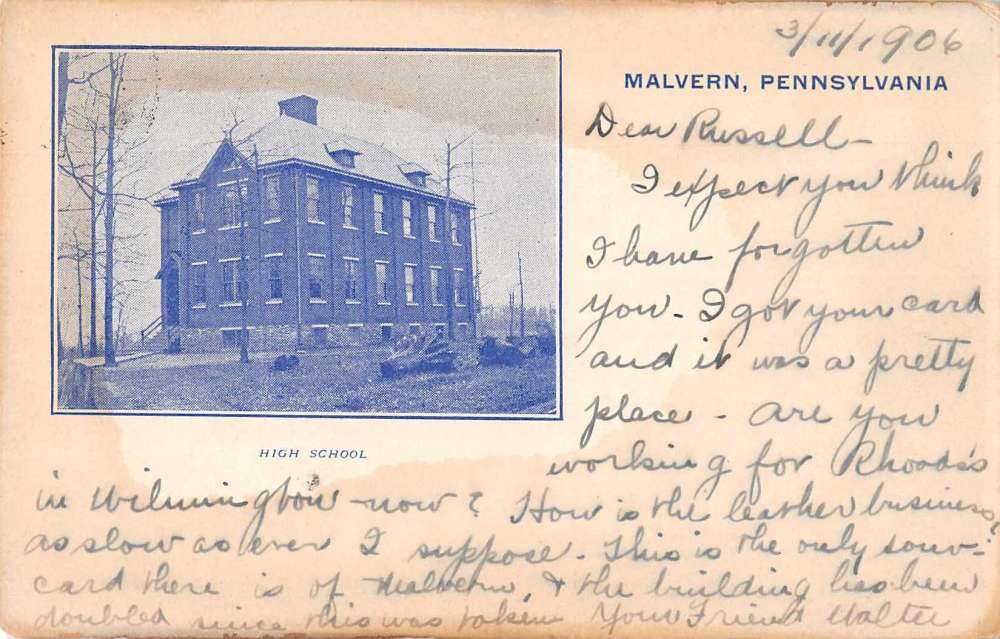 3/11/1906
MALVERN, PENNSYLVANIA
Dear Russell-
I expect you think
I have forgotten
you - I got your card
and it was a pretty
place - are you
HIGH SCHOOL
working for Rhoads's
in Wilmington now? How is the leather business,
as slow as ever I suppose. This is the only souv-
card there is of Malvern, & the building has been
doubled since this was taken Your Friend Walter